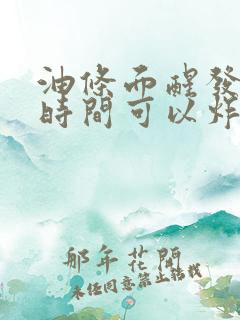 油條而醒發
時間可以炸
那年花開
未任同意禁止轉載